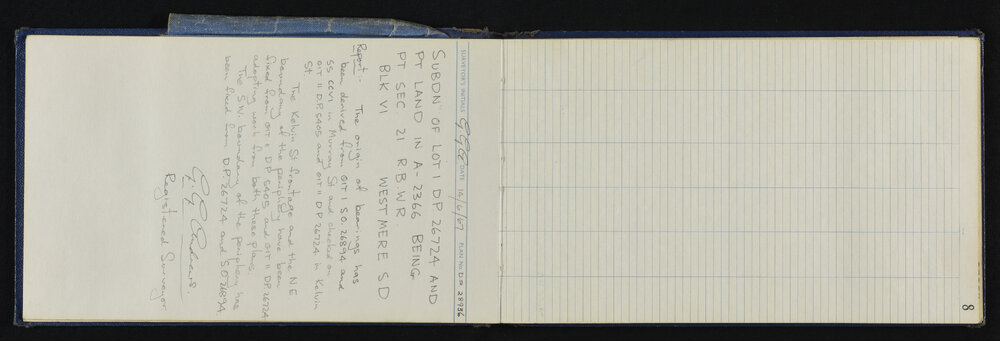 SURVEYOR'S INITIALS G G A DATE 14/6/67 PLAN NO. DP 28936
SUBDN OF LOT 1 DP 26724 AND
PT LAND IN A-2366 BEING
PT SEC 21 R.B.W.R.
BLK VI WESTMERE SD
Report:- The origin of bearings has
been derived from OIT I S.O. 26894 and
SS CCVI in Murray St and checked on
OIT II D.P. 5405 and OIT II D.P. 26724 in Kelvin
St.
The Kelvin St frontage and the N.E
boundary of the periphery have been
fixed from OIT II D.P. 5405 and OIT II D.P. 26724
adopting work from both these plans.
The S.W. boundary of the periphery has
been fixed from D.P. 26724 and S.O. 26894.
G. G. Andrews.
Registered Surveyor
8